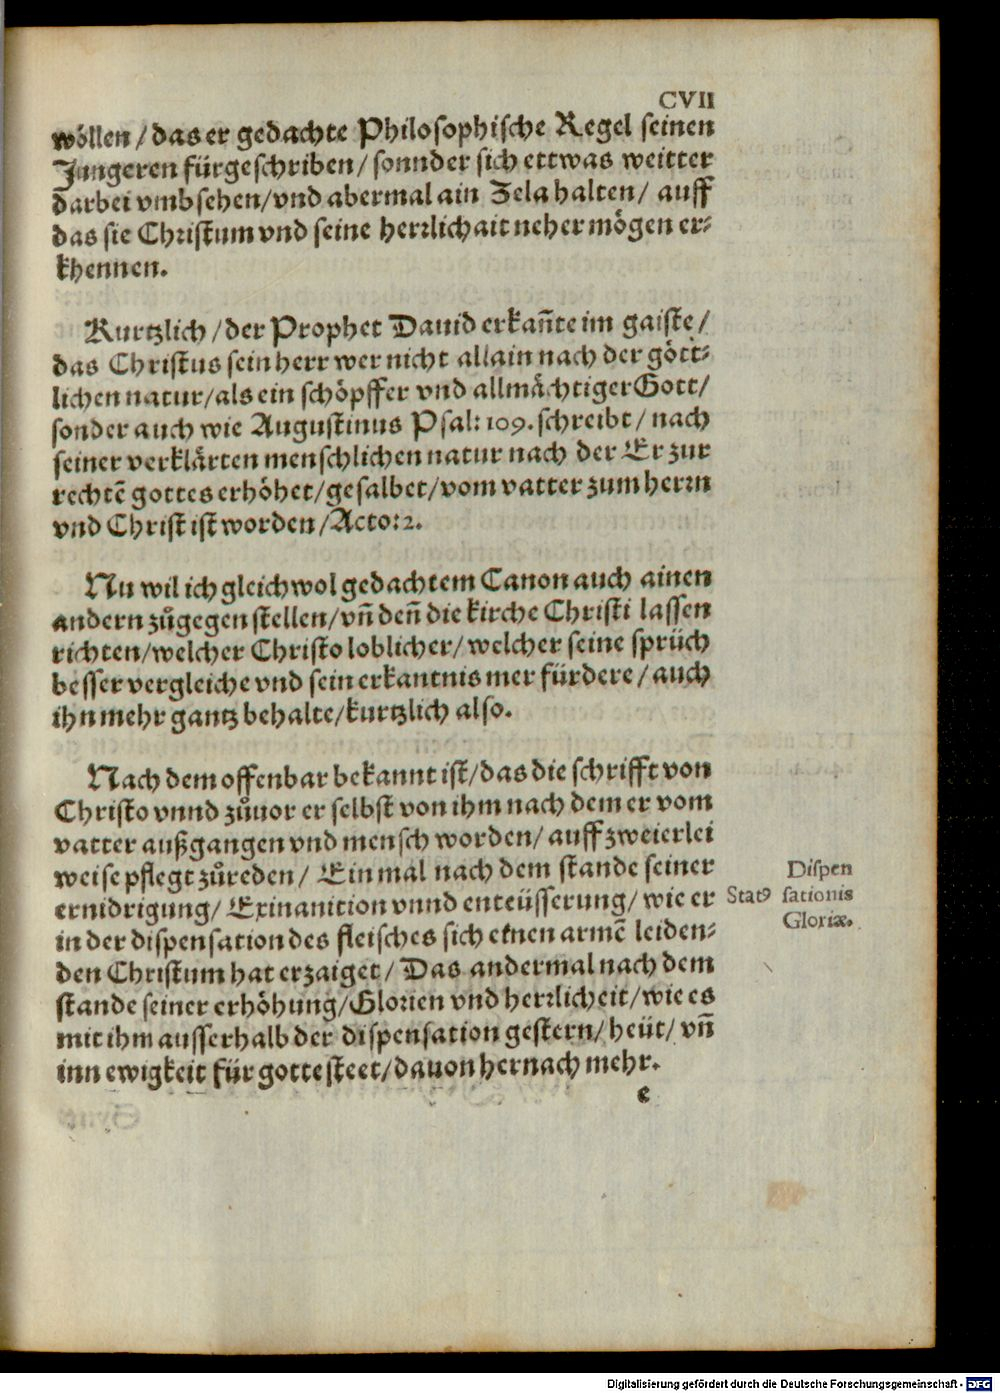 CVII
wöllen / das er gedachte Philosophische Regel seinen
Jungeren fürgeschriben / sonnder sich ettwas weitter
darbei vmbsehen / vnd abermal ain Zela halten / auff
das sie Christum vnd seine herrlichait neher mögen er⸗
khennen.
Kurtzlich / der Prophet Dauid erkañte im gaiste /
das Christus sein herr wer nicht allain nach der gött⸗
lichen natur / als ein schöpffer vnd allmächtiger Gott /
sonder auch wie Augustinus Psal: 109. schreibt / nach
seiner verklärten menschlichen natur nach der Er zur
rechtē gottes erhöhet / gesalbet / vom vatter zum herrn
vnd Christ ist worden / Acto: 2.
Nu wil ich gleichwol gedachtem Canon auch ainen
andern zůgegen stellen / vñ deñ die kirche Christi lassen
richten / welcher Christo loblicher / welcher seine sprüch
besser vergleiche vnd sein erkantnis mer fürdere / auch
ihn mehr gantz behalte / kurtzlich also.
Nach dem offenbar bekannt ist / das die schrifft von
Christo vnnd zůuor er selbst von ihm nach dem er vom
vatter außgangen vnd mensch worden / auff zweierlei
weise pflegt zůreden / Ein mal nach dem stande seiner
ernidrigung / Exinanition vnnd enteüsserung / wie er
in der dispensation des fleisches sich einen armē leiden⸗
den Christum hat erzaiget / Das andermal nach dem
stande seiner erhöhung / Glorien vnd herrlicheit / wie es
mit ihm ausserhalb der dispensation gestern / heüt / vñ
inn ewigkeit für gotte steet / dauon hernach mehr.
e
Dispen
Statꝰ sationis
Gloriæ.
Digitalisierung gefördert durch die Deutsche Forschungsgemeinschaft - DFG